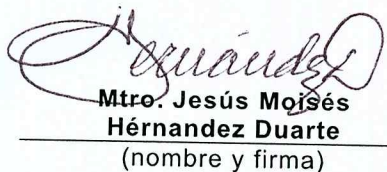 Hernández
Mtro. Jesús Moisés
Hérnandez Duarte
(nombre y firma)